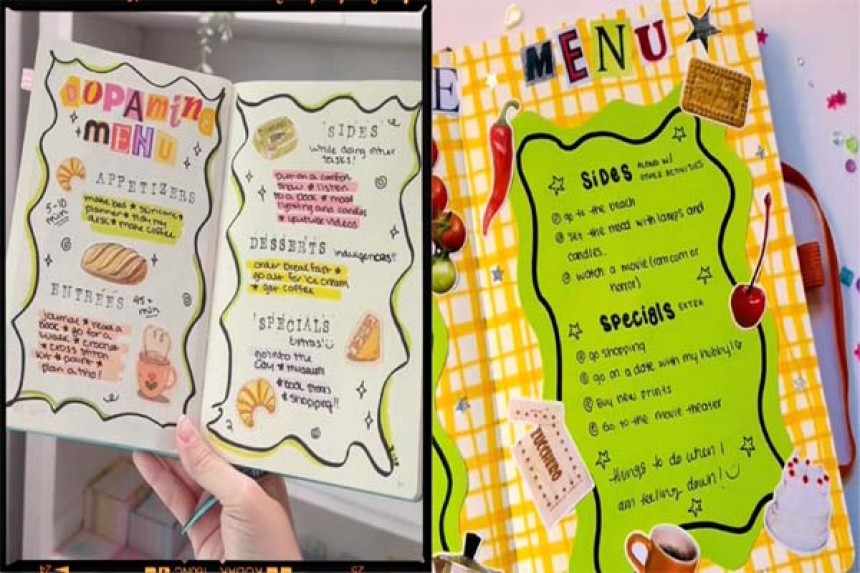 DOPAMINE
MENU
APPETIZERS
5-10
min
make bed * skincare *
planner * tidy my
desk * make coffee
ENTREES 45+
min
journal * read a
book * go for a
walk * crochet
* cross stitch
* paint *
plan a trip!
SIDES
while doing other
tasks!
put on a comfort
show * listen
to a book * mood
lighting and candles
* youtube videos
DESSERTS indulgences!!
order breakfast *
go out for ice cream
* get coffee
SPECIALS
extras!
go into the
city * museum
* book stores
* shopping!!
E
MENU
SIDES ALONG W/
OTHER ACTIVITIES
go to the beach
Set the mood with lamps and
candles.
Watch a movie (rom com or
horror)
SPECIALS EXTRA
go shopping
go on a date with my hubby!
Buy new prints
Go to the movie theater
things to do when I
am feeling down!
ZUCCHERO
24
KODAK
25